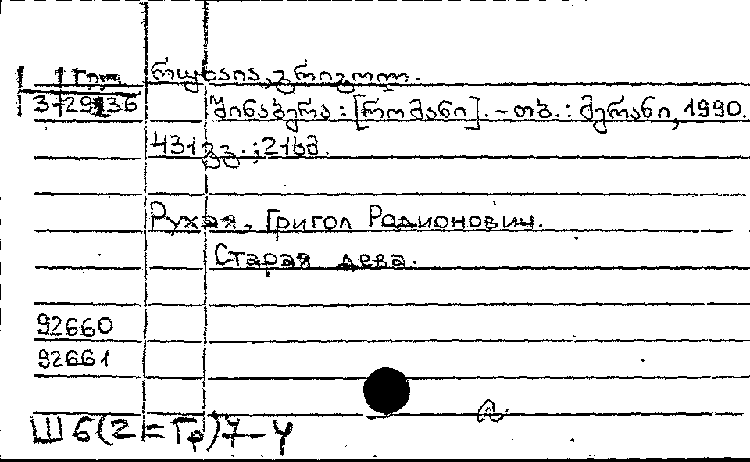 1 Гру. რუხაია, გრიგოლ.
3-29136 შინაბერა : [რომანი]. - თბ. : მერანი, 1990.
431 გვ. ; 21სმ.
Рухая, Григол Радионович.
Старая дева.
92660
92661
Ш6(2=Гр)7-4